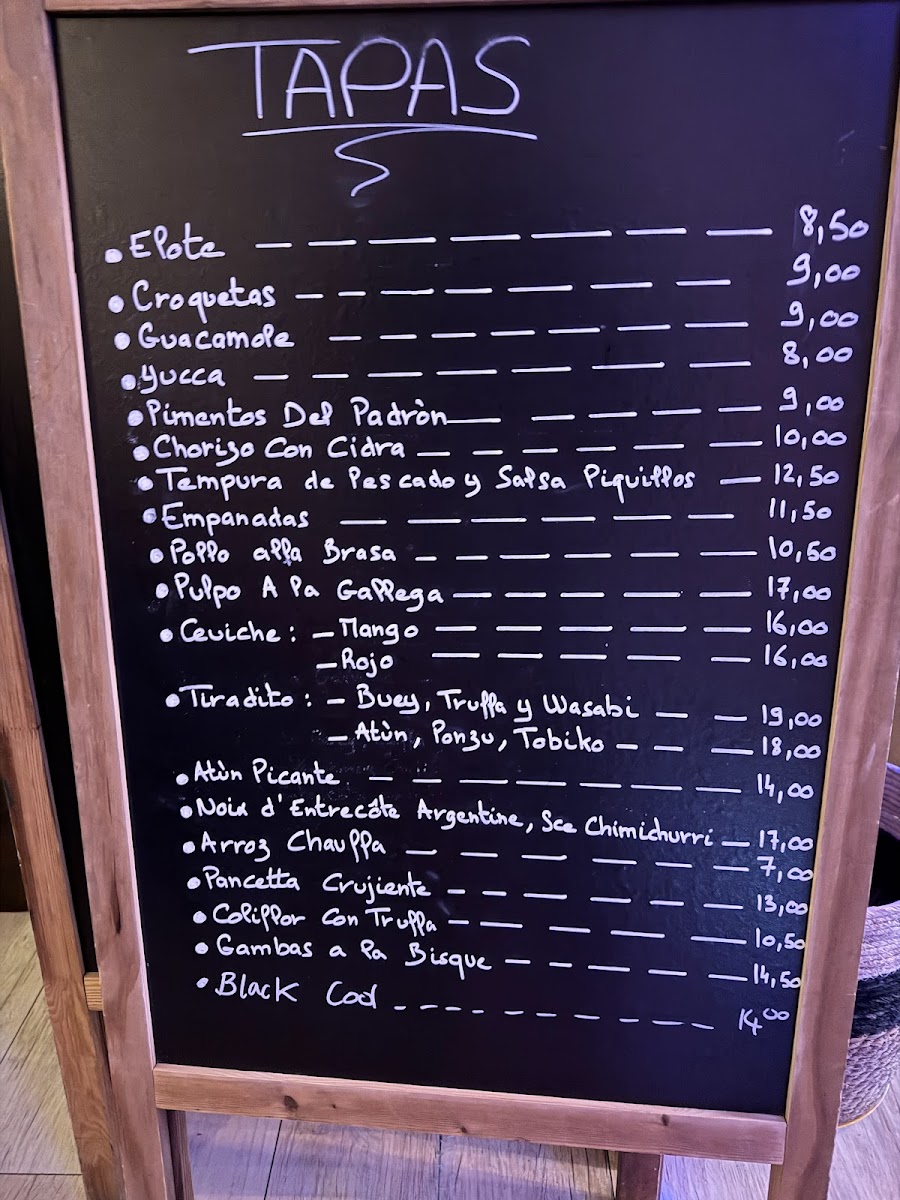 TAPAS
• Elote — — — — — — — 8,50
• Croquetas — — — — — — — 9,00
• Guacamole — — — — — — 9,00
• Yucca — — — — — — — 8,00
• Pimentos Del Padròn — — — — — 9,00
• Chorizo Con Cidra — — — — — — 10,00
• Tempura de Pescado y Salsa Piquillos — 12,50
• Empanadas — — — — — — 11,50
• Pollo alla Brasa — — — — — — 10,50
• Pulpo A la Gallega — — — — — — 17,00
• Ceviche : – Mango — — — — — — 16,00
– Rojo — — — — — — 16,00
• Tiradito : – Buey, Truffa y Wasabi — — 19,00
– Atùn, Ponzu, Tobiko — — — 18,00
• Atùn Picante — — — — — — — 14,00
• Noix d'Entrecôte Argentine, Sce Chimichurri — 17,00
• Arroz Chauffa — — — — — — 7,00
• Pancetta Crujiente — — — — — — 13,00
• Coliflor con Truffa — — — — — — 10,50
• Gambas a la Bisque — — — — — 14,50
• Black Cod - - - - - - - - - - 14,00